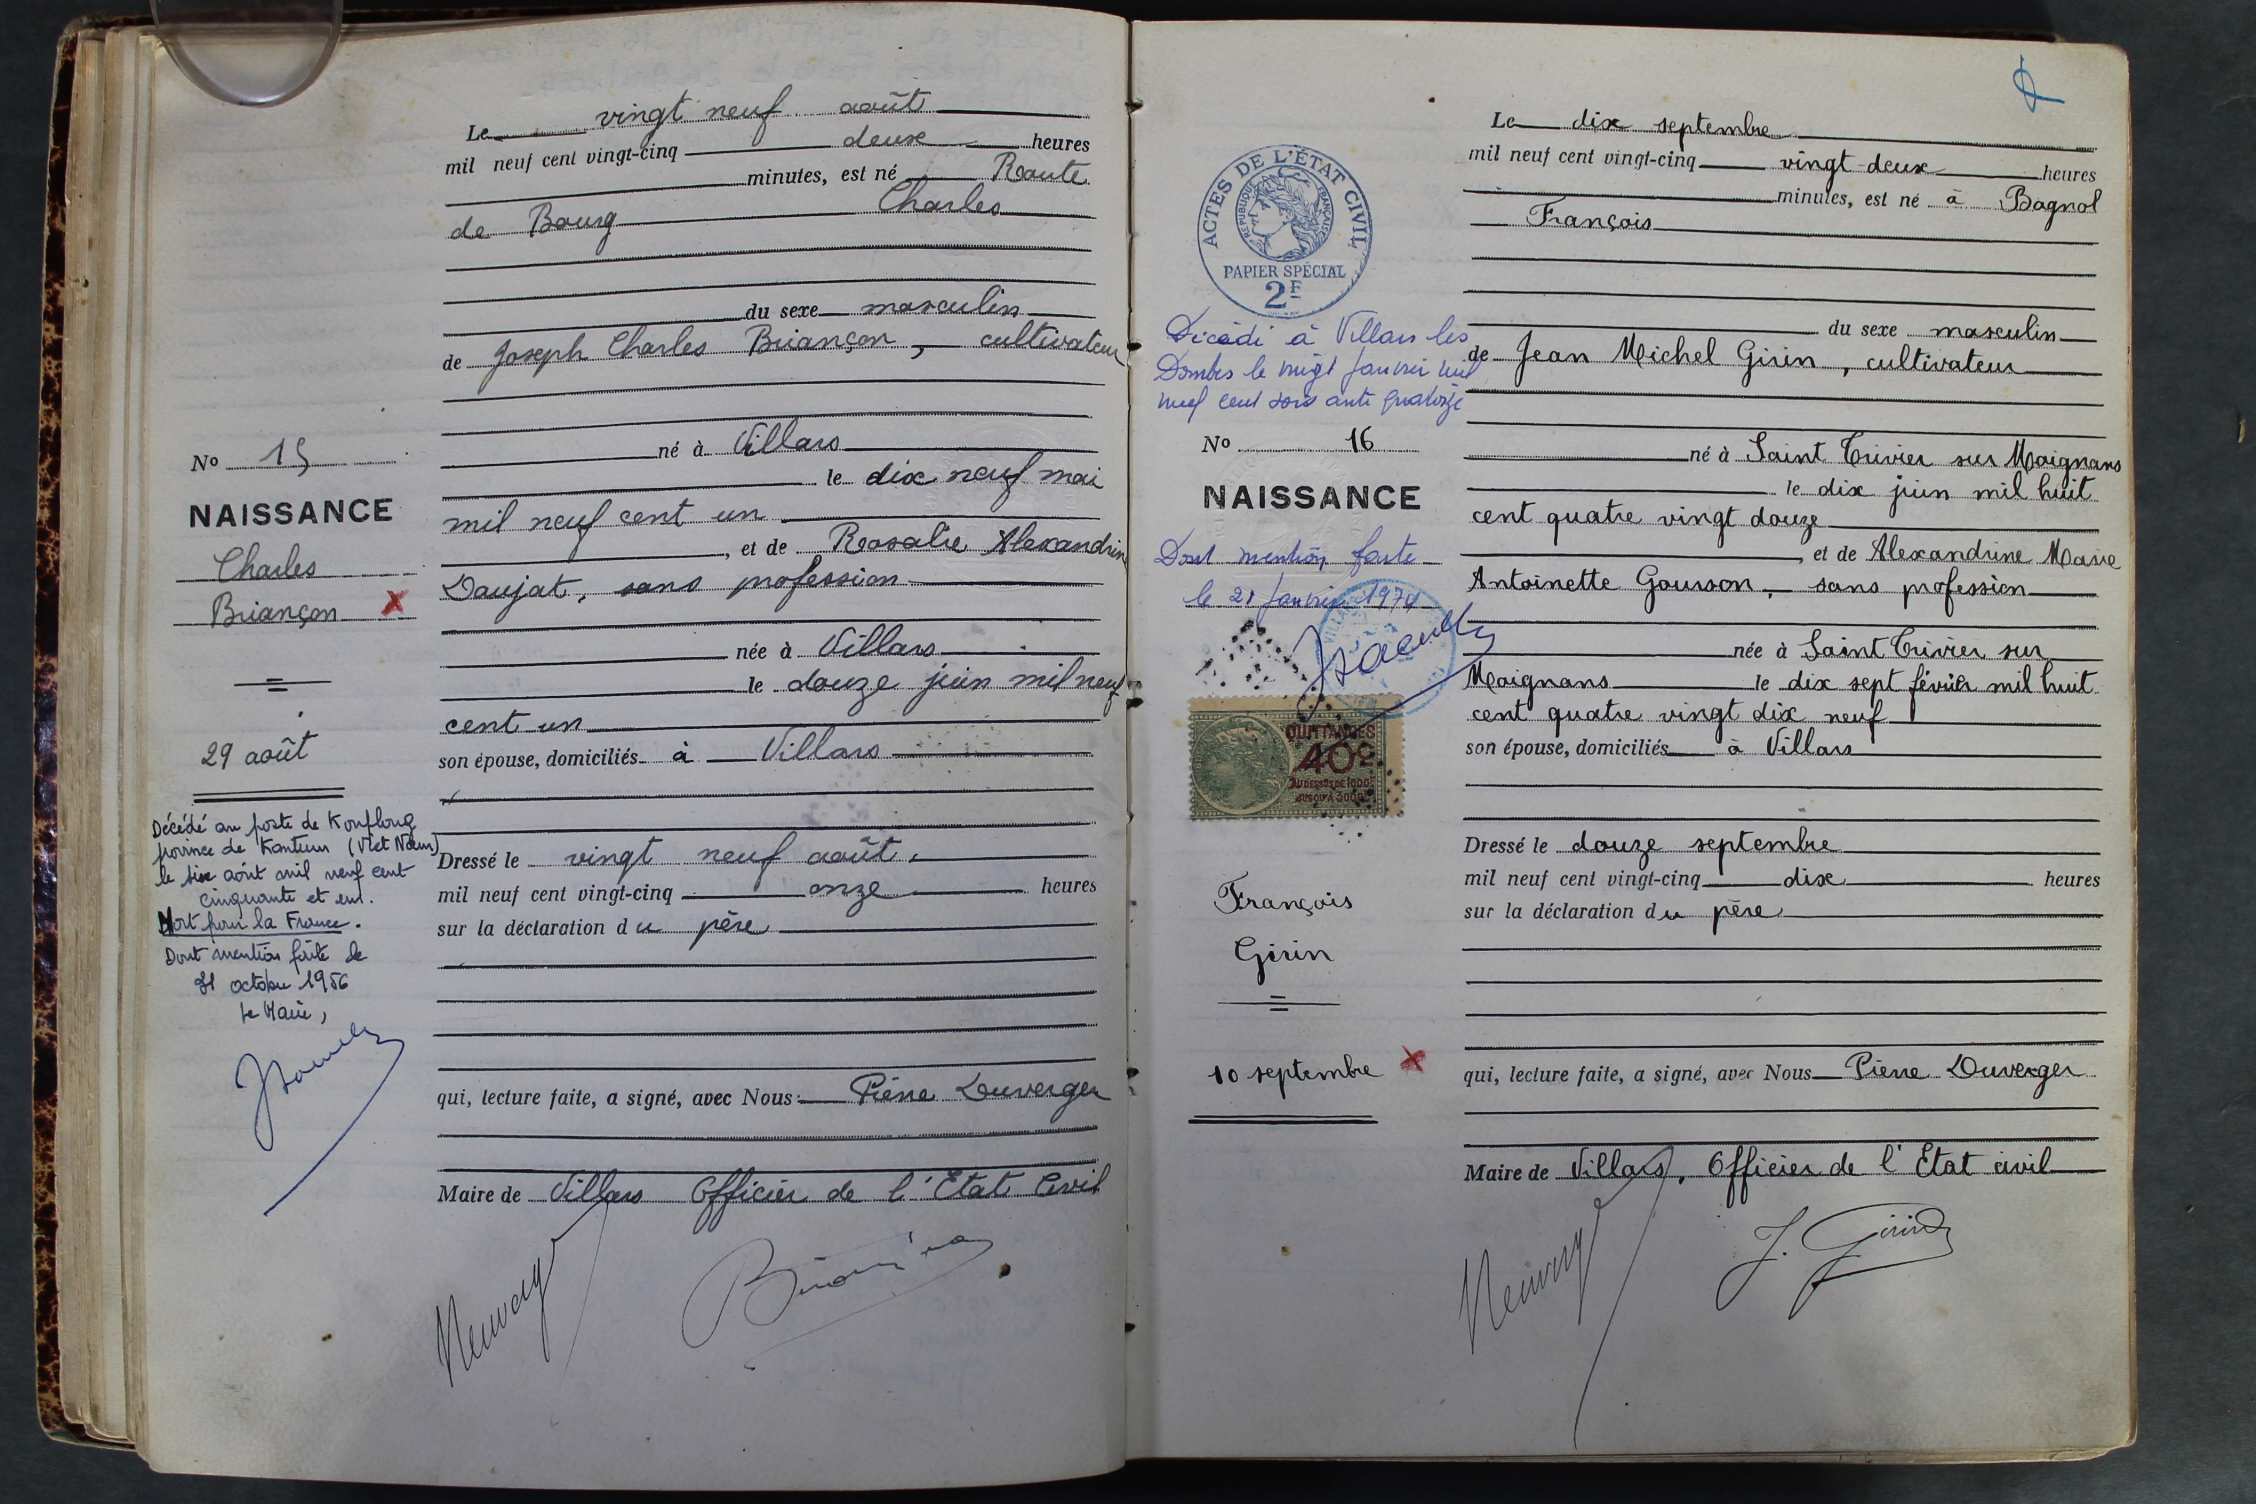 Le vingt neuf août
mil neuf cent vingt-cinq deux heures
minutes, est né Route
de Bourg Charles
du sexe masculin
de Joseph Charles Briançon, cultivateur
né à Villars
le dix neuf mai
mil neuf cent un
, et de Rosalie Alexandrine
Daujat, sans profession
née à Villars
le douze juin mil neuf
cent un
son épouse, domiciliés à Villars
Dressé le vingt neuf août,
mil neuf cent vingt-cinq onze heures
sur la déclaration du père
qui, lecture faite, a signé, avec Nous Pierre Duverger
Maire de Villars Officier de l'Etat Civil
No 15
NAISSANCE
Charles
Briançon X
29 août
Décédé au poste de Konflong
province de Kontum (Viet Nam)
le six août mil neuf cent
cinquante et un.
Mort pour la France.
Dont mention faite le
31 octobre 1956
Le Maire,
ACTES DE L'ÉTAT CIVIL
RÉPUBLIQUE FRANÇAISE
PAPIER SPÉCIAL
2F
Décédé à Villars les
Dombes le vingt Janvier mil
neuf cent soixante quatorze
No 16
NAISSANCE
Dont mention faite
le 21 Janvier 1974
QUITTANCES
40c
AU DESSUS DE 1000F
JUSQU'A 3000F
François
Girin
10 septembre X
Le dix septembre
mil neuf cent vingt-cinq vingt-deux heures
minutes, est né à Bagnol
François
du sexe masculin
de Jean Michel Girin, cultivateur
né à Saint Trivier sur Moignans
le dix juin mil huit
cent quatre vingt douze
et de Alexandrine Marie
Antoinette Gourson, sans profession
née à Saint Trivier sur
Moignans le dix sept février mil huit
cent quatre vingt dix neuf
son épouse, domiciliés à Villars
Dressé le douze septembre
mil neuf cent vingt-cinq dix heures
sur la déclaration du père
qui, lecture faite, a signé, avec Nous Pierre Duverger
Maire de Villars, Officier de l'Etat civil
J. Girin